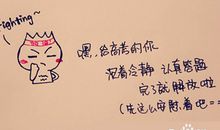 fighting~
嘿，给高考的你
沉着冷静 认真答题
完了就解放啦
(先这么安慰着吧==)